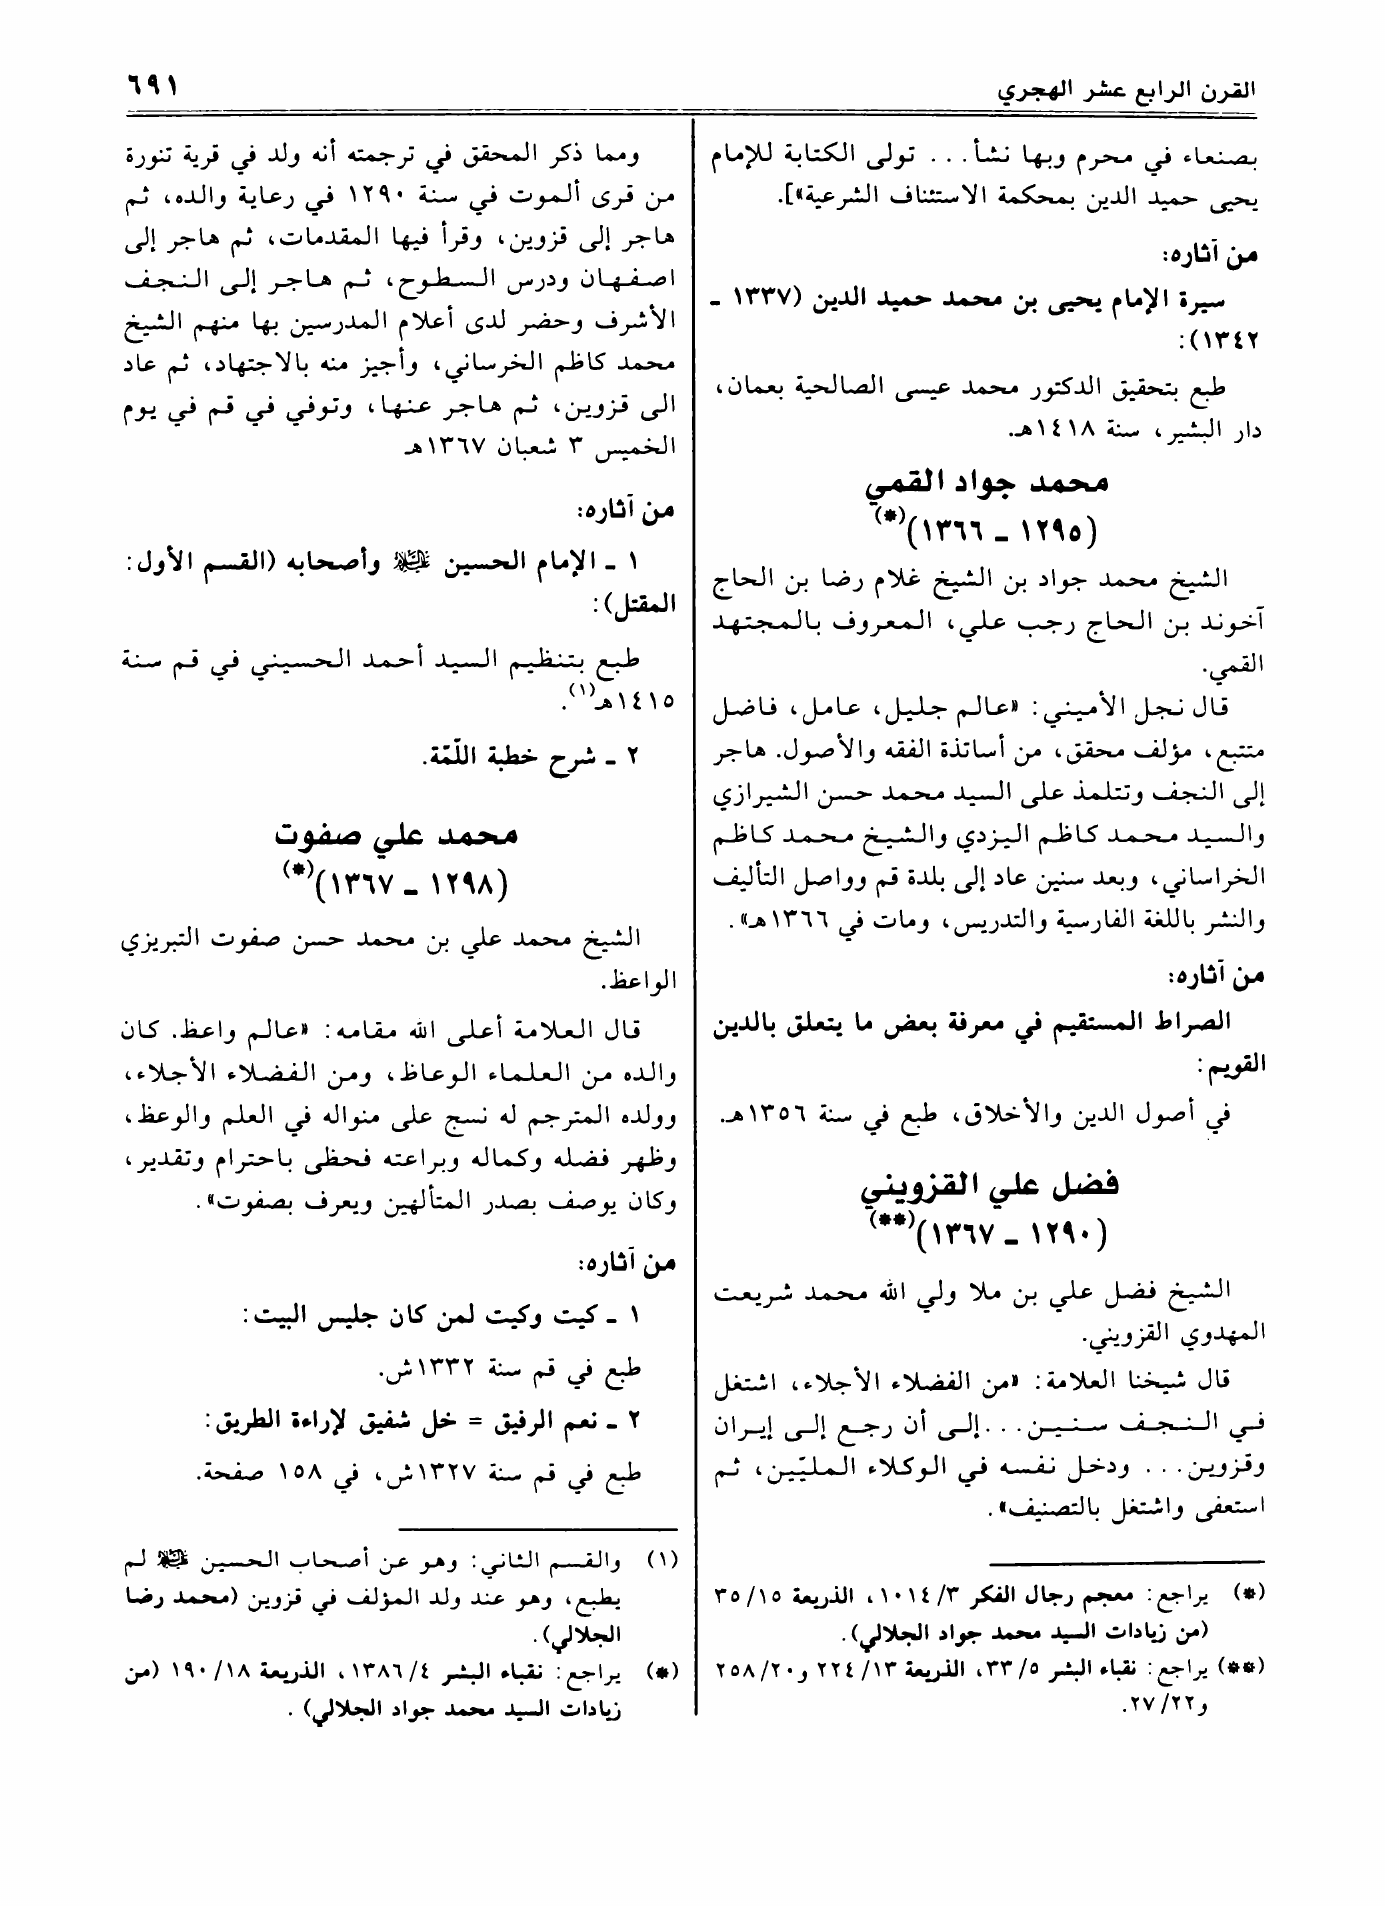 القرن الرابع عشر الهجري
٦٩١
بصنعاء في محرم وبها نشأ... تولى الكتابة للإمام
يحيى حميد الدين بمحكمة الاستئناف الشرعية»].
من آثاره:
سيرة الإمام يحيى بن محمد حميد الدين (١٣٣٧ ـ
١٣٤٢):
طبع بتحقيق الدكتور محمد عيسى الصالحية بعمان،
دار البشير، سنة ١٤١٨هـ.
محمد جواد القمي
(١٢٩٥ ـ ١٣٦٦)(*)
الشيخ محمد جواد بن الشيخ غلام رضا بن الحاج
آخوند بن الحاج رجب علي، المعروف بالمجتهد
القمي.
قال نجل الأميني: «عالم جليل، عامل، فاضل
متتبع، مؤلف محقق، من أساتذة الفقه والأصول. هاجر
إلى النجف وتتلمذ على السيد محمد حسن الشيرازي
والسيد محمد كاظم اليزدي والشيخ محمد كاظم
الخراساني، وبعد سنين عاد إلى بلدة قم وواصل التأليف
والنشر باللغة الفارسية والتدريس، ومات في ١٣٦٦هـ».
من آثاره:
الصراط المستقيم في معرفة بعض ما يتعلق بالدين
القويم:
في أصول الدين والأخلاق، طبع في سنة ١٣٥٦هـ.
فضل علي القزويني
(١٢٩٠ ـ ١٣٦٧)(**)
الشيخ فضل علي بن ملا ولي الله محمد شريعت
المهدوي القزويني.
قال شيخنا العلامة: «من الفضلاء الأجلاء، اشتغل
في النجف سنين...إلى أن رجع إلى إيران
وقزوين... ودخل نفسه في الوكلاء المليّين، ثم
استعفى واشتغل بالتصنيف».
(*) يراجع: معجم رجال الفكر ٣/ ١٠١٤، الذريعة ١٥/ ٣٥
(من زيادات السيد محمد جواد الجلالي).
(**) يراجع: نقباء البشر ٥/ ٣٣، الذريعة ١٣/ ٢٢٤ و٢٠/ ٢٥٨
و٢٢/ ٢٧.
ومما ذكر المحقق في ترجمته أنه ولد في قرية تنورة
من قرى ألموت في سنة ١٢٩٠ في رعاية والده، ثم
هاجر إلى قزوين، وقرأ فيها المقدمات، ثم هاجر إلى
اصفهان ودرس السطوح، ثم هاجر إلى النجف
الأشرف وحضر لدى أعلام المدرسين بها منهم الشيخ
محمد كاظم الخرساني، وأجيز منه بالاجتهاد، ثم عاد
الى قزوين، ثم هاجر عنها، وتوفي في قم في يوم
الخميس ٣ شعبان ١٣٦٧هـ
من آثاره:
١ ـ الإمام الحسين عليه السلام وأصحابه (القسم الأول:
المقتل):
طبع بتنظيم السيد أحمد الحسيني في قم سنة
١٤١٥هـ(١).
٢ ـ شرح خطبة اللّمّة.
محمد علي صفوت
(١٢٩٨ ـ ١٣٦٧)(*)
الشيخ محمد علي بن محمد حسن صفوت التبريزي
الواعظ.
قال العلامة أعلى الله مقامه: «عالم واعظ. كان
والده من العلماء الوعاظ، ومن الفضلاء الأجلاء،
وولده المترجم له نسج على منواله في العلم والوعظ،
وظهر فضله وكماله وبراعته فحظى باحترام وتقدير،
وكان يوصف بصدر المتألهين ويعرف بصفوت».
من آثاره:
١ ـ كيت وكيت لمن كان جليس البيت:
طبع في قم سنة ١٣٣٢ش.
٢ ـ نعم الرفيق = خل شفيق لإراءة الطريق:
طبع في قم سنة ١٣٢٧ش، في ١٥٨ صفحة.
(١) والقسم الثاني: وهو عن أصحاب الحسين عليه السلام لم
يطبع، وهو عند ولد المؤلف في قزوين (محمد رضا
الجلالي).
(*) يراجع: نقباء البشر ٤/ ١٣٨٦، الذريعة ١٨/ ١٩٠ (من
زيادات السيد محمد جواد الجلالي).